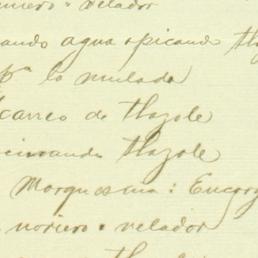 niero = velador
ando agua opicando tla
Pª la mulada
carreo de tlazole
cinando tlazole
Marquesina : Encarg
noriero = velador